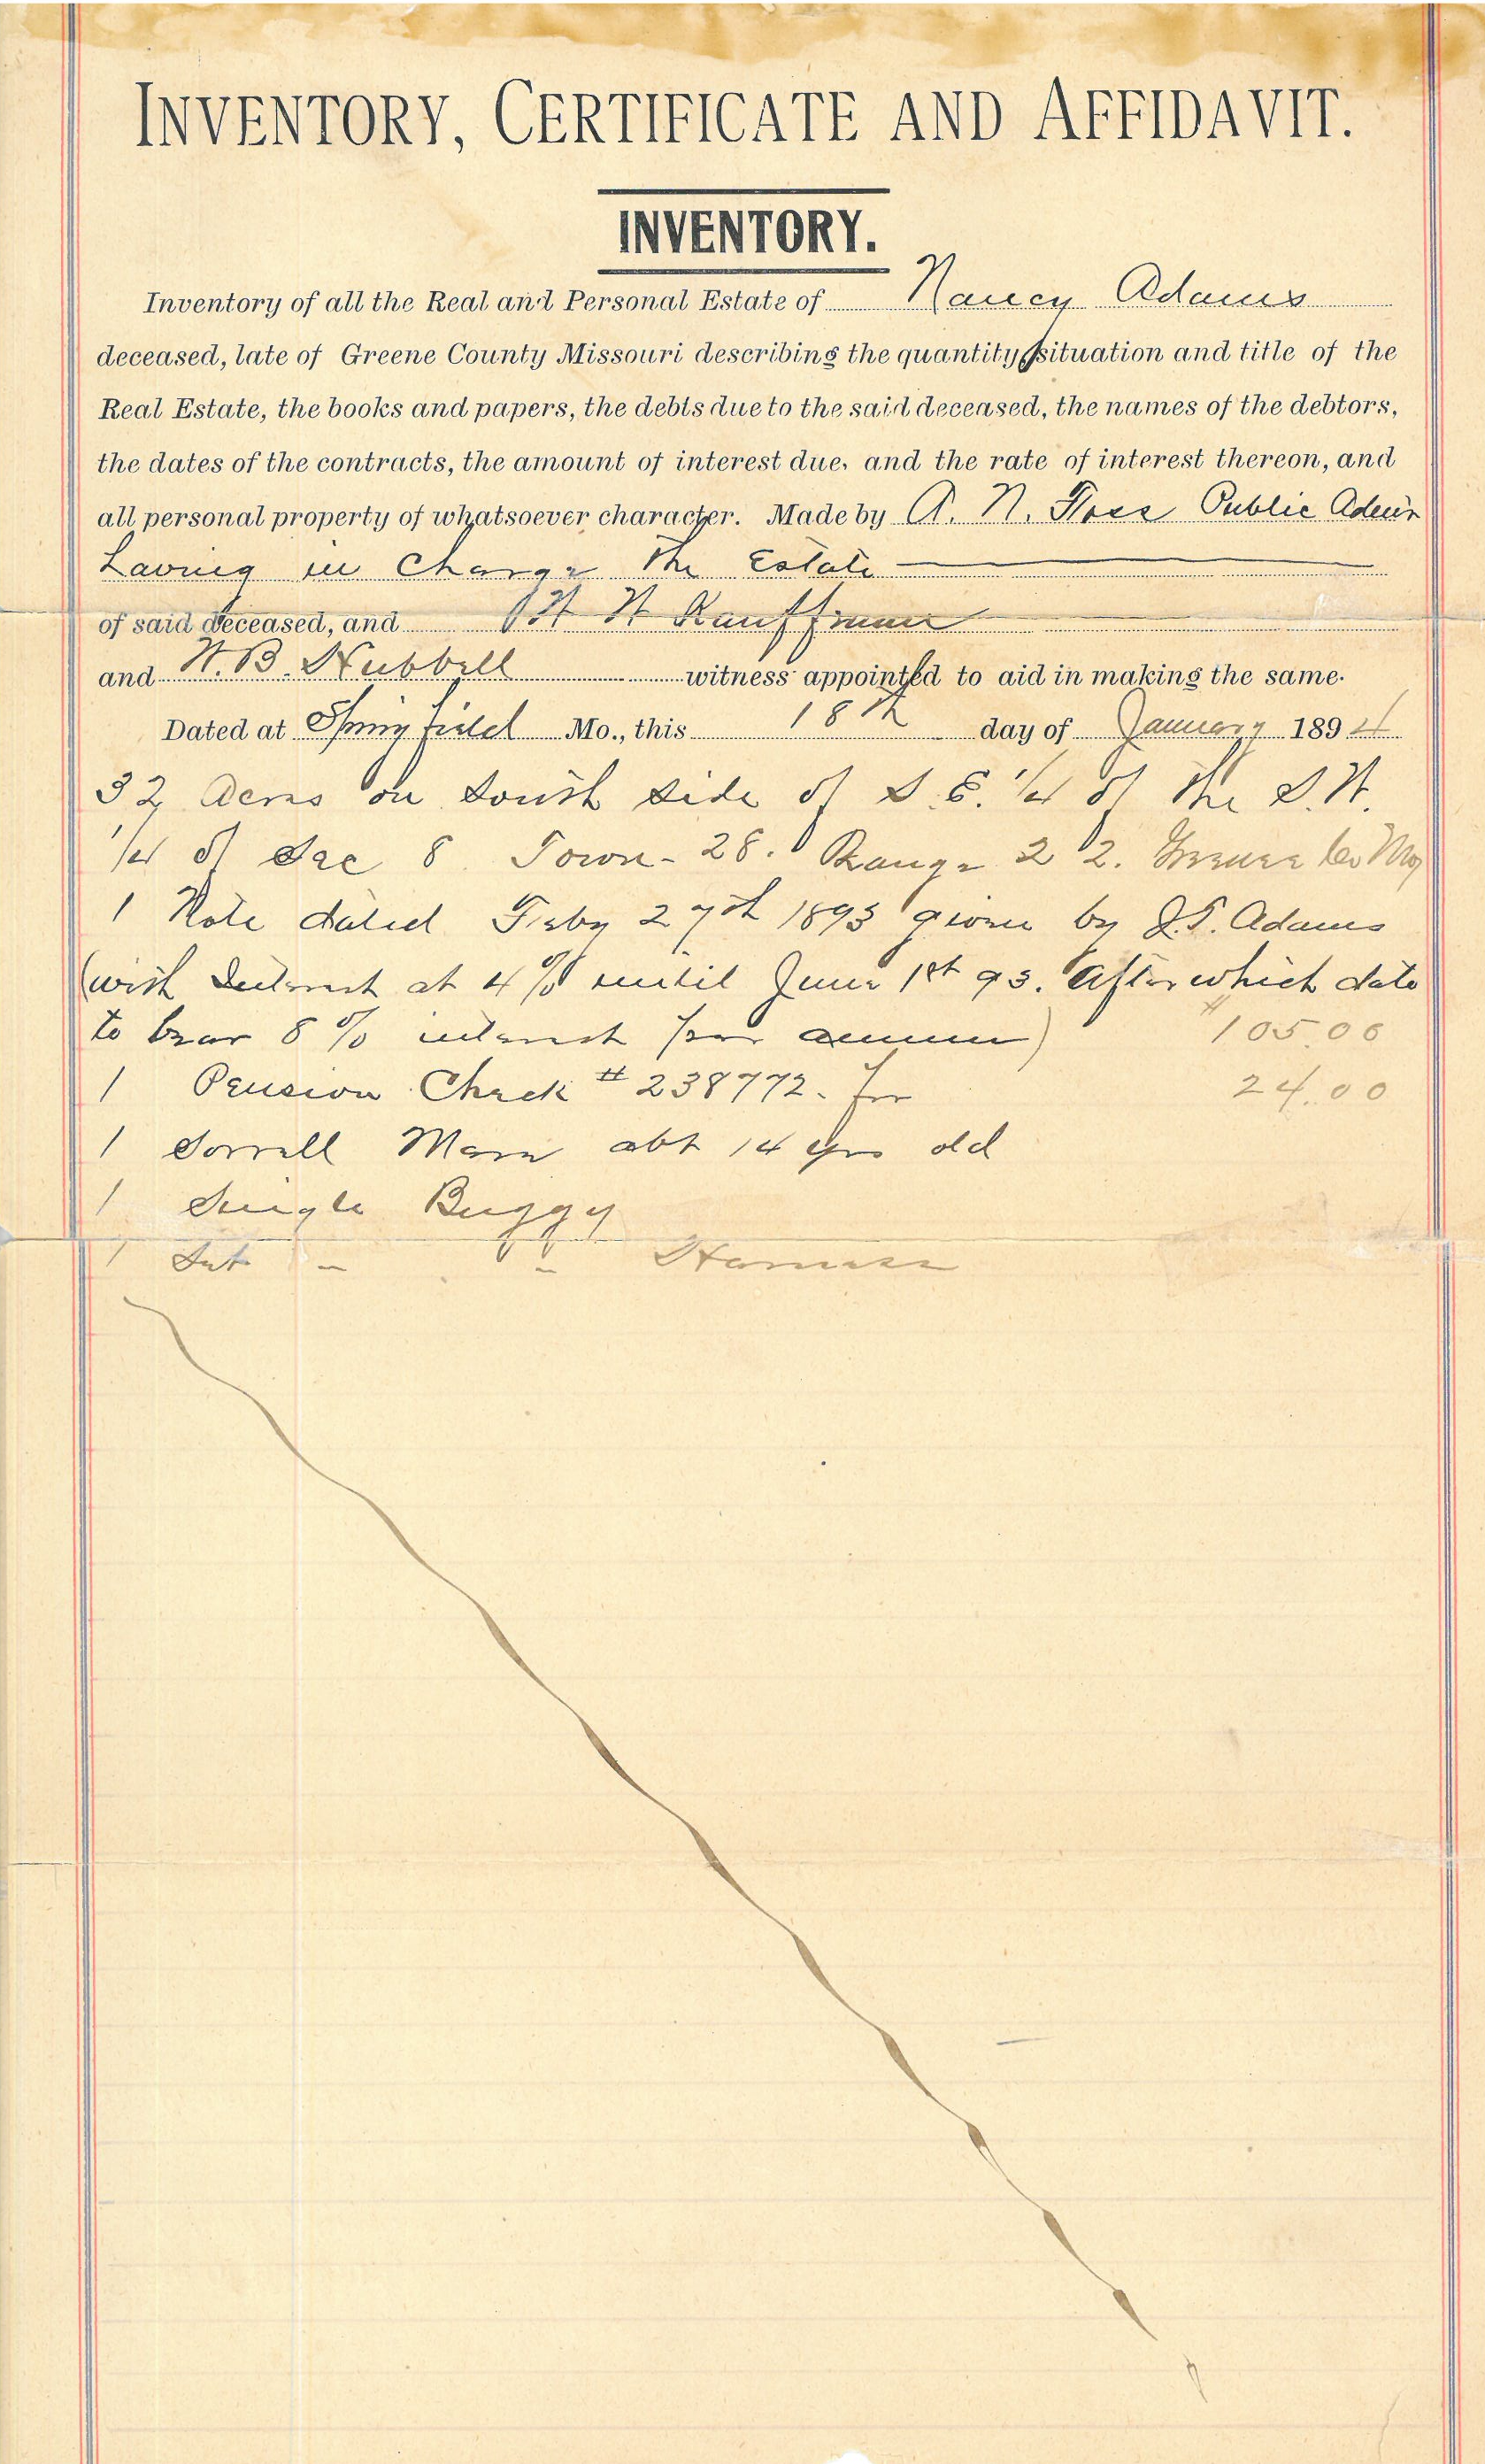 INVENTORY, CERTIFICATE AND AFFIDAVIT.
INVENTORY.
Inventory of all the Real and Personal Estate of Nancy Adams
deceased, late of Greene County Missouri describing the quantity, situation and title of the
Real Estate, the books and papers, the debts due to the said deceased, the names of the debtors,
the dates of the contracts, the amount of interest due, and the rate of interest thereon, and
all personal property of whatsoever character. Made by A. N. Public Admr
having in charge the Estate
of said deceased, and H Kauffman
and W. B. Hubbell witness appointed to aid in making the same.
Dated at Springfield Mo., this 18th day of January 1894
32 Acres on South side of S. E. 1/4 of the S. W.
1/4 of Sec 8 Town - 28. Range 22. Greene Co Mo
1 Note dated Feby 27th 1893 given by J. Adams
(with Interest at 4% until June 1st 93. After which date
to bear 8% interest per annum) $105.00
1 Pension Check # 238772. for 24.00
1 Sorrell Mare abt 14 yrs old
1 Single Buggy
1 Set - - Harness